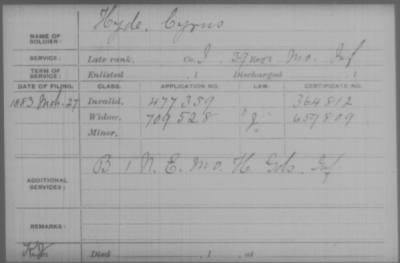 Hyde, Cyrus
NAME OF SOLDIER:
SERVICE: Late rank, Co. I, 39 Regt. Mo. Inf
TERM OF SERVICE: Enlisted , 1 Discharged , 1
DATE OF FILING. CLASS. APPLICATION NO. LAW. CERTIFICATE NO.
1883 Mch. 27 Invalid, 477359 364812
Widow, 709528 "J" 659809
Minor,
B 1 N. E. Mo. H Gds. Inf
ADDITIONAL SERVICES:
REMARKS:
Died , 1 , at